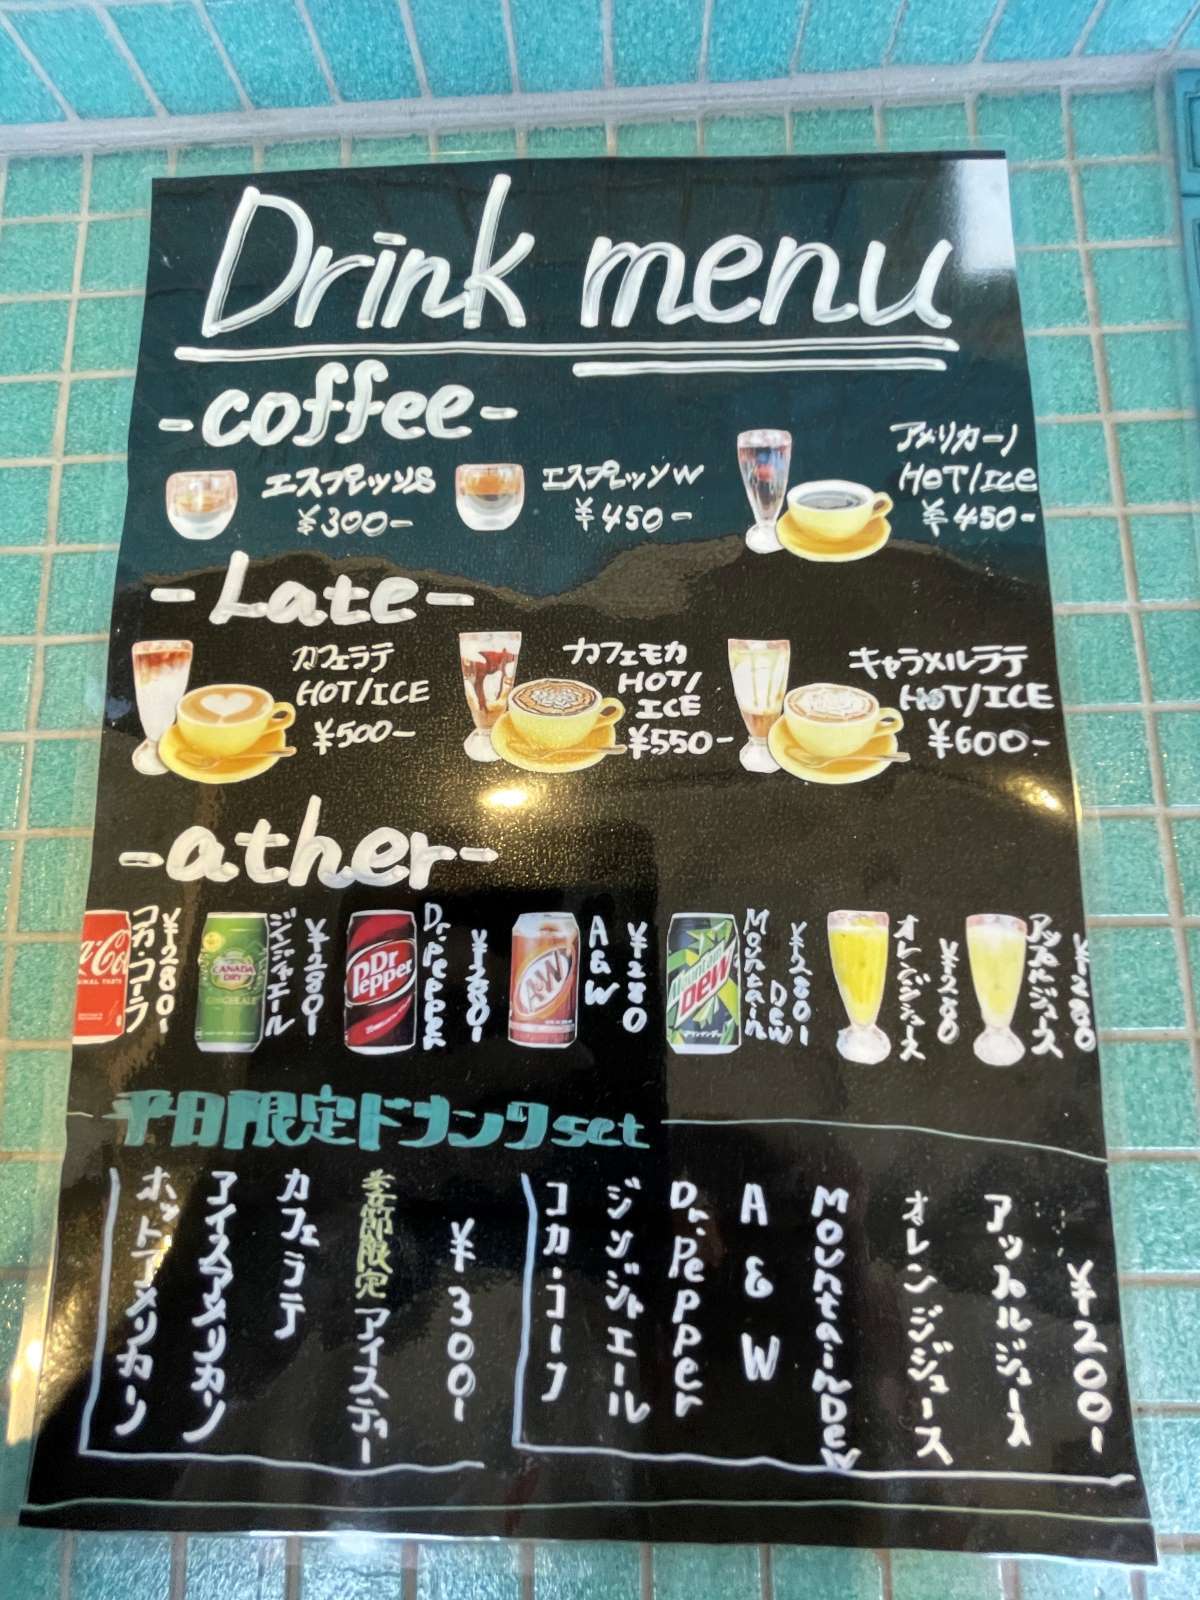 Drink menu
-coffee-
エスプレッソS
¥300-
エスプレッソW
¥450-
アメリカーノ
HOT/ICE
¥450-
-Late-
カフェラテ
HOT/ICE
¥500-
カフェモカ
HOT/
ICE
¥550-
キャラメルラテ
HOT/ICE
¥600-
-ather-
コカ・コーラ
¥280-
ジンジャエール
¥280-
CANADA
DRY
GINGER ALE
Dr.Pepper
¥280-
Dr
Pepper
A&W
¥280
A&W
Mountain
Dew
¥280-
Mountain
DEW
オレンジジュース
¥280
アップルジュース
¥280
平日限定ドリンクset
ホットアメリカーノ
アイスアメリカーノ
カフェラテ
季節限定 アイスティー
¥300-
コカ・コーラ
ジンジャエール
Dr.Pepper
A&W
Mountain Dew
オレンジジュース
アップルジュース
¥200-